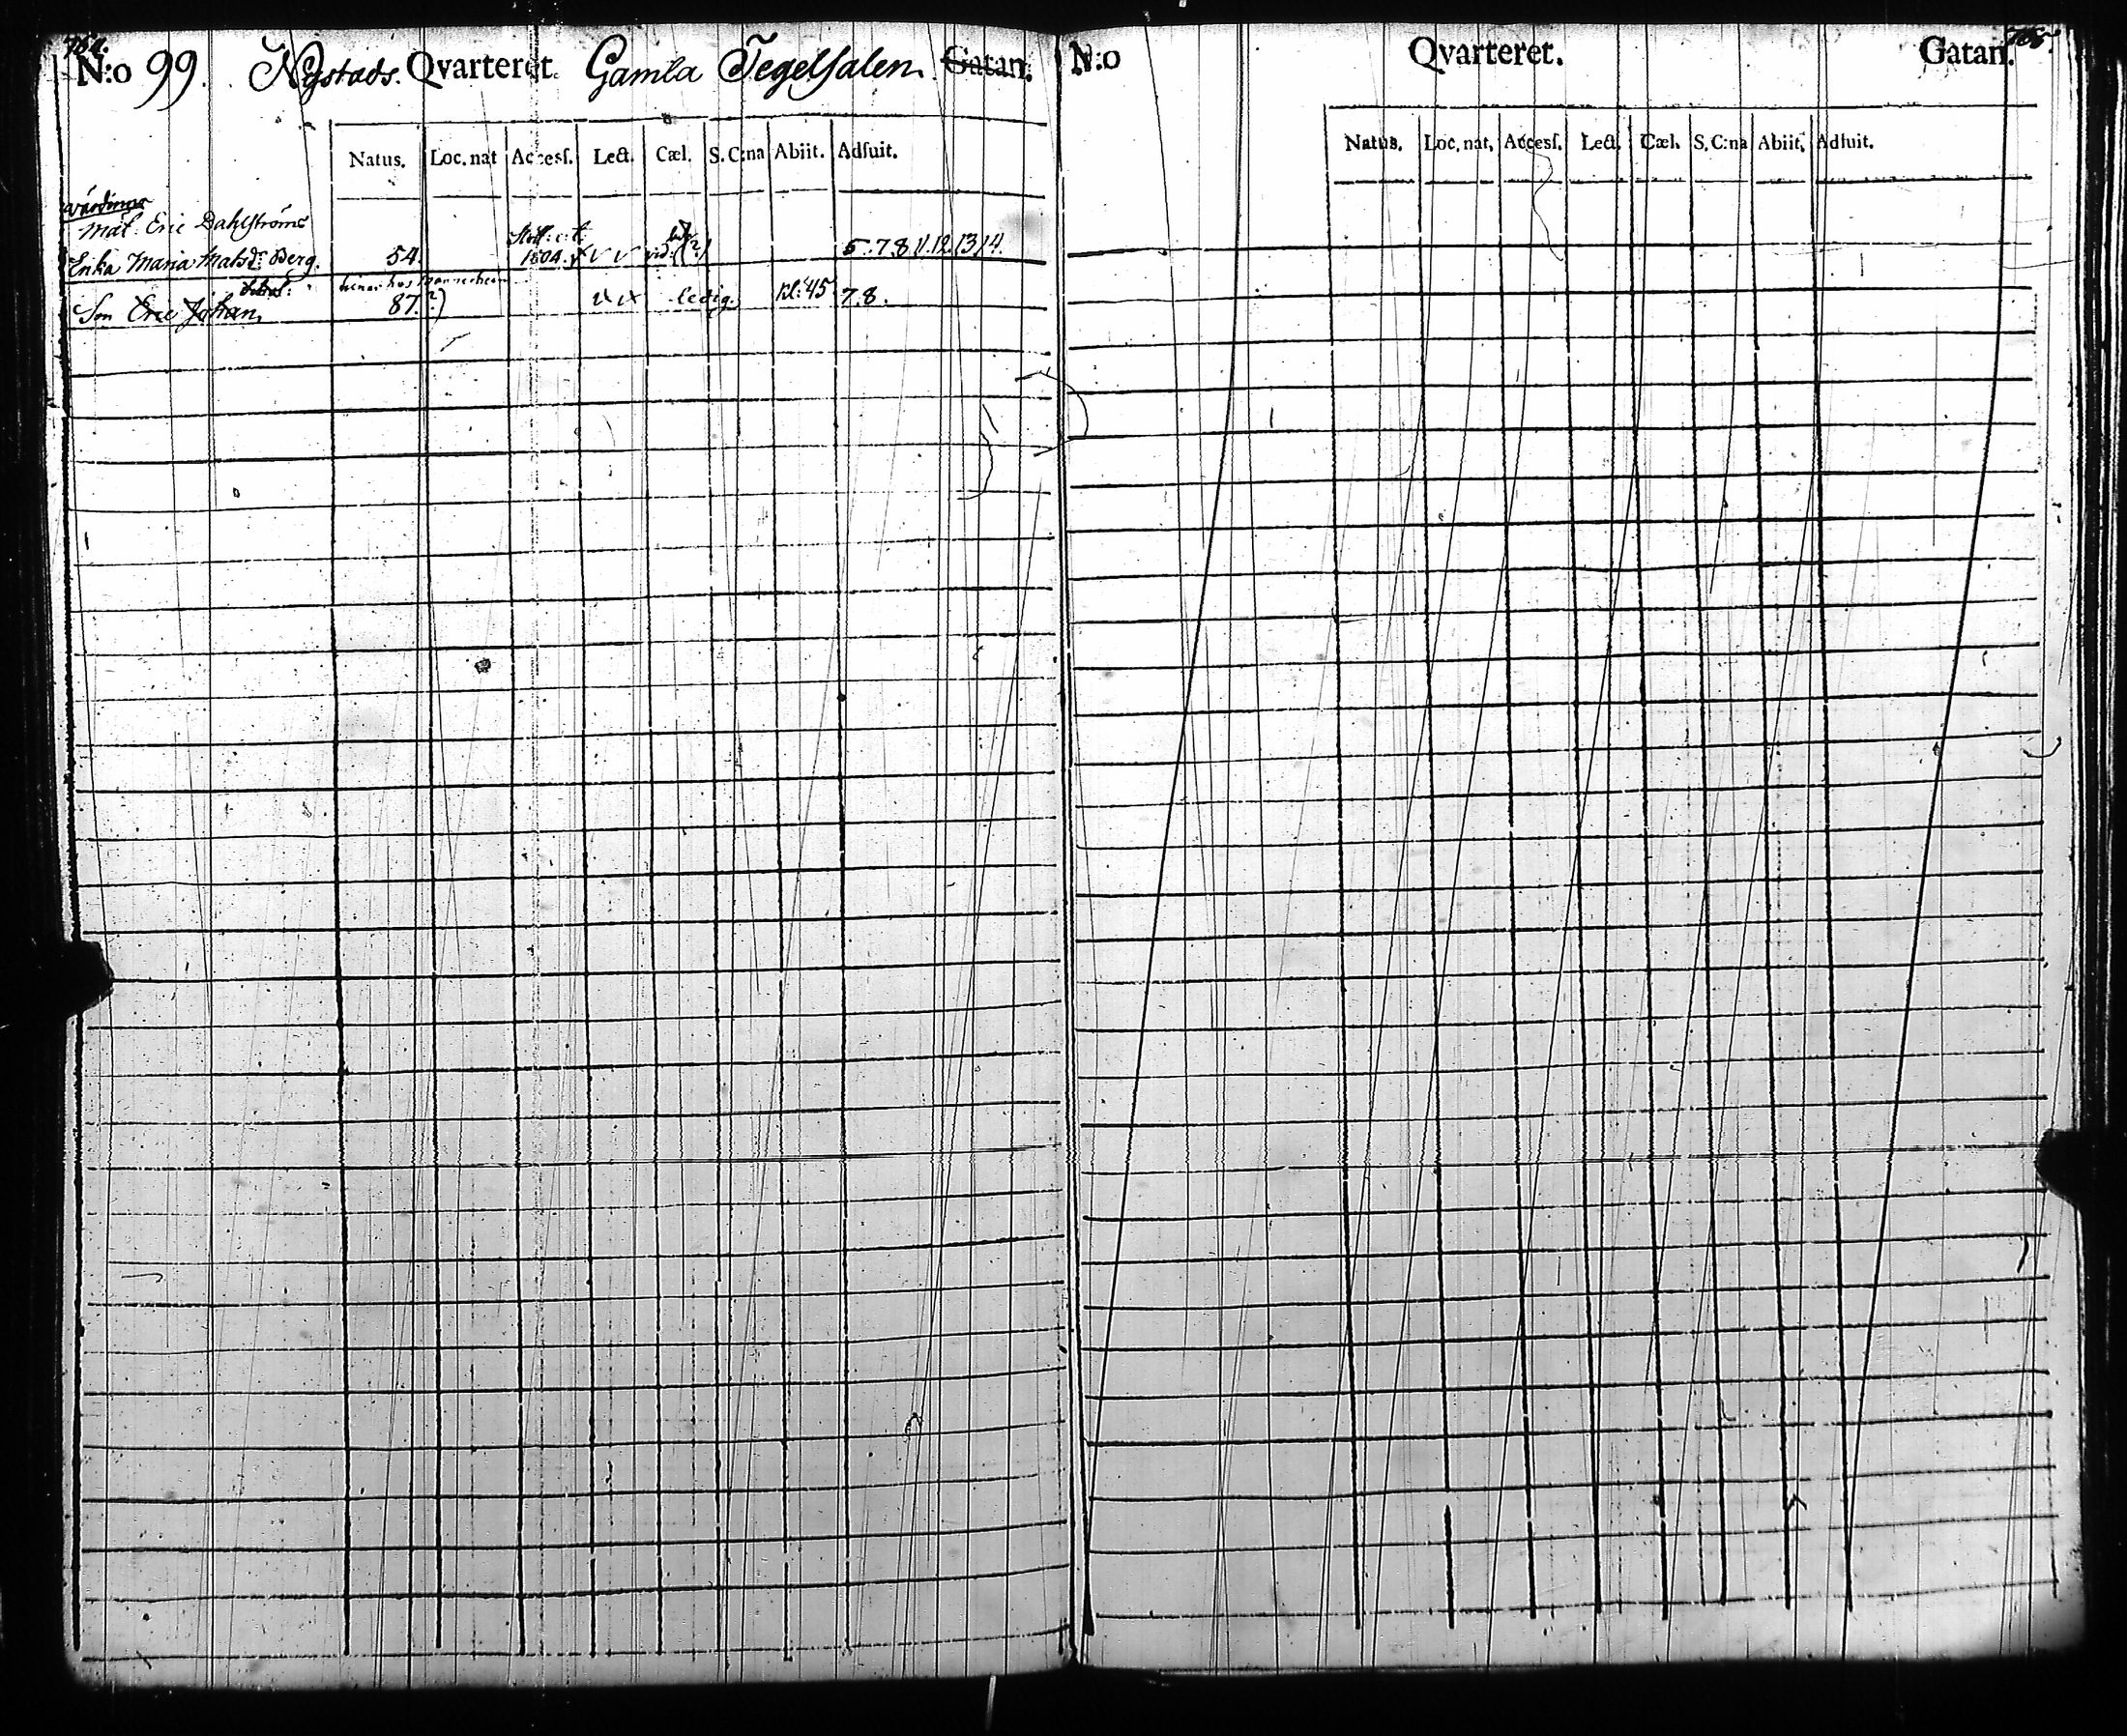 764.
N:o 99. Nystads. Qvarteret. Gamla Tegelsalen. Gatan.
Natus. Loc. nat Access. Lect. Cæl. S. C:na Abiit. Adfuit.
Mat. Eric Dahlströms
Enka Maria Matsd:r Berg. 54. 1804. v v 5. 7. 8 11. 12. 13 14.
Son Eric Johan. 87. ?) ledig. kl: 45 7. 8.
765.
N:o Qvarteret. Gatan.
Natus. Loc. nat. Access. Lect. Cæl. S. C:na Abiit. Adfuit.